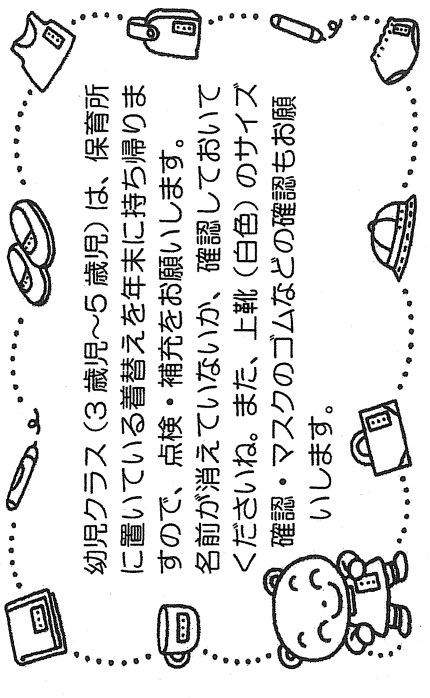 幼児クラス（3歳児～5歳児）は、保育所
に置いている着替えを年末に持ち帰りま
すので、点検・補充をお願いします。
名前が消えていないか、確認しておいて
くださいね。また、上靴（白色）のサイズ
確認・マスクのゴムなどの確認もお願
いします。